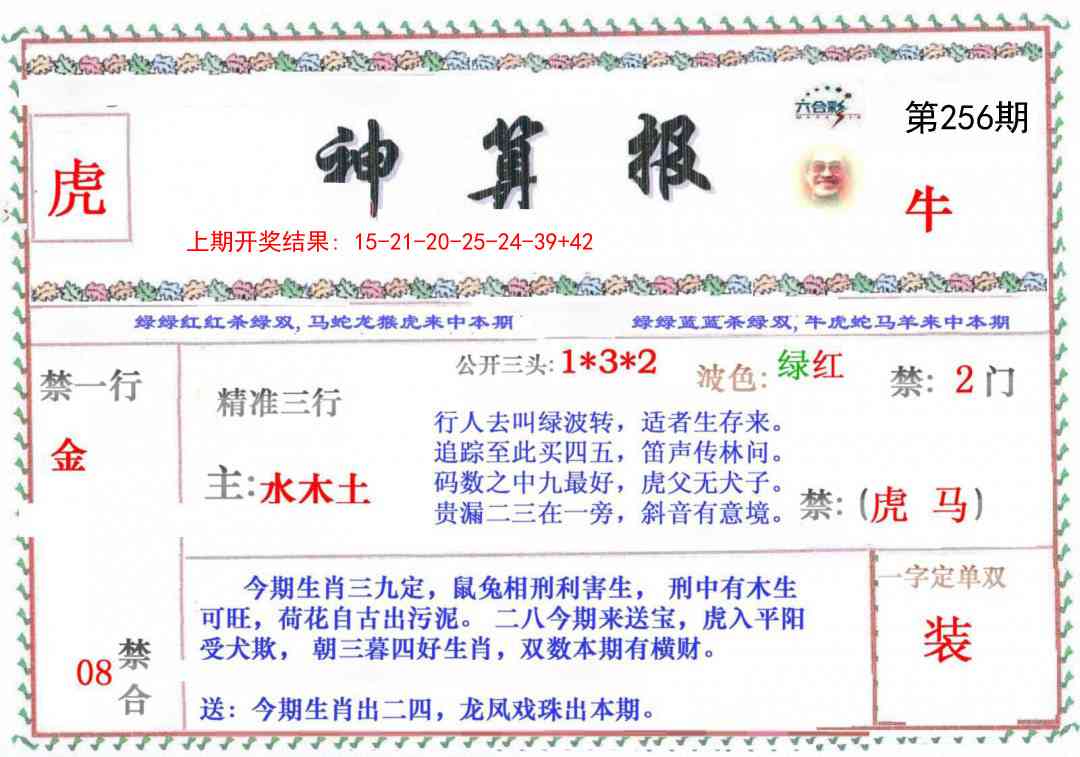 六合彩
第256期
虎
神算报
牛
上期开奖结果: 15-21-20-25-24-39+42
绿绿红红杀绿双,马蛇龙猴虎来中本期
绿绿蓝蓝杀绿双,牛虎蛇马羊来中本期
禁一行
金
精准三行
主:水木土
公开三头:1*3*2
波色:绿红
禁: 2门
行人去叫绿波转，适者生存来。
追踪至此买四五，笛声传林问。
码数之中九最好，虎父无犬子。
贵漏二三在一旁，斜音有意境。
禁:(虎 马)
今期生肖三九定，鼠兔相刑利害生， 刑中有木生
可旺，荷花自古出污泥。 二八今期来送宝，虎入平阳
受犬欺， 朝三暮四好生肖，双数本期有横财。
送：今期生肖出二四，龙凤戏珠出本期。
08
禁合
一字定单双
装